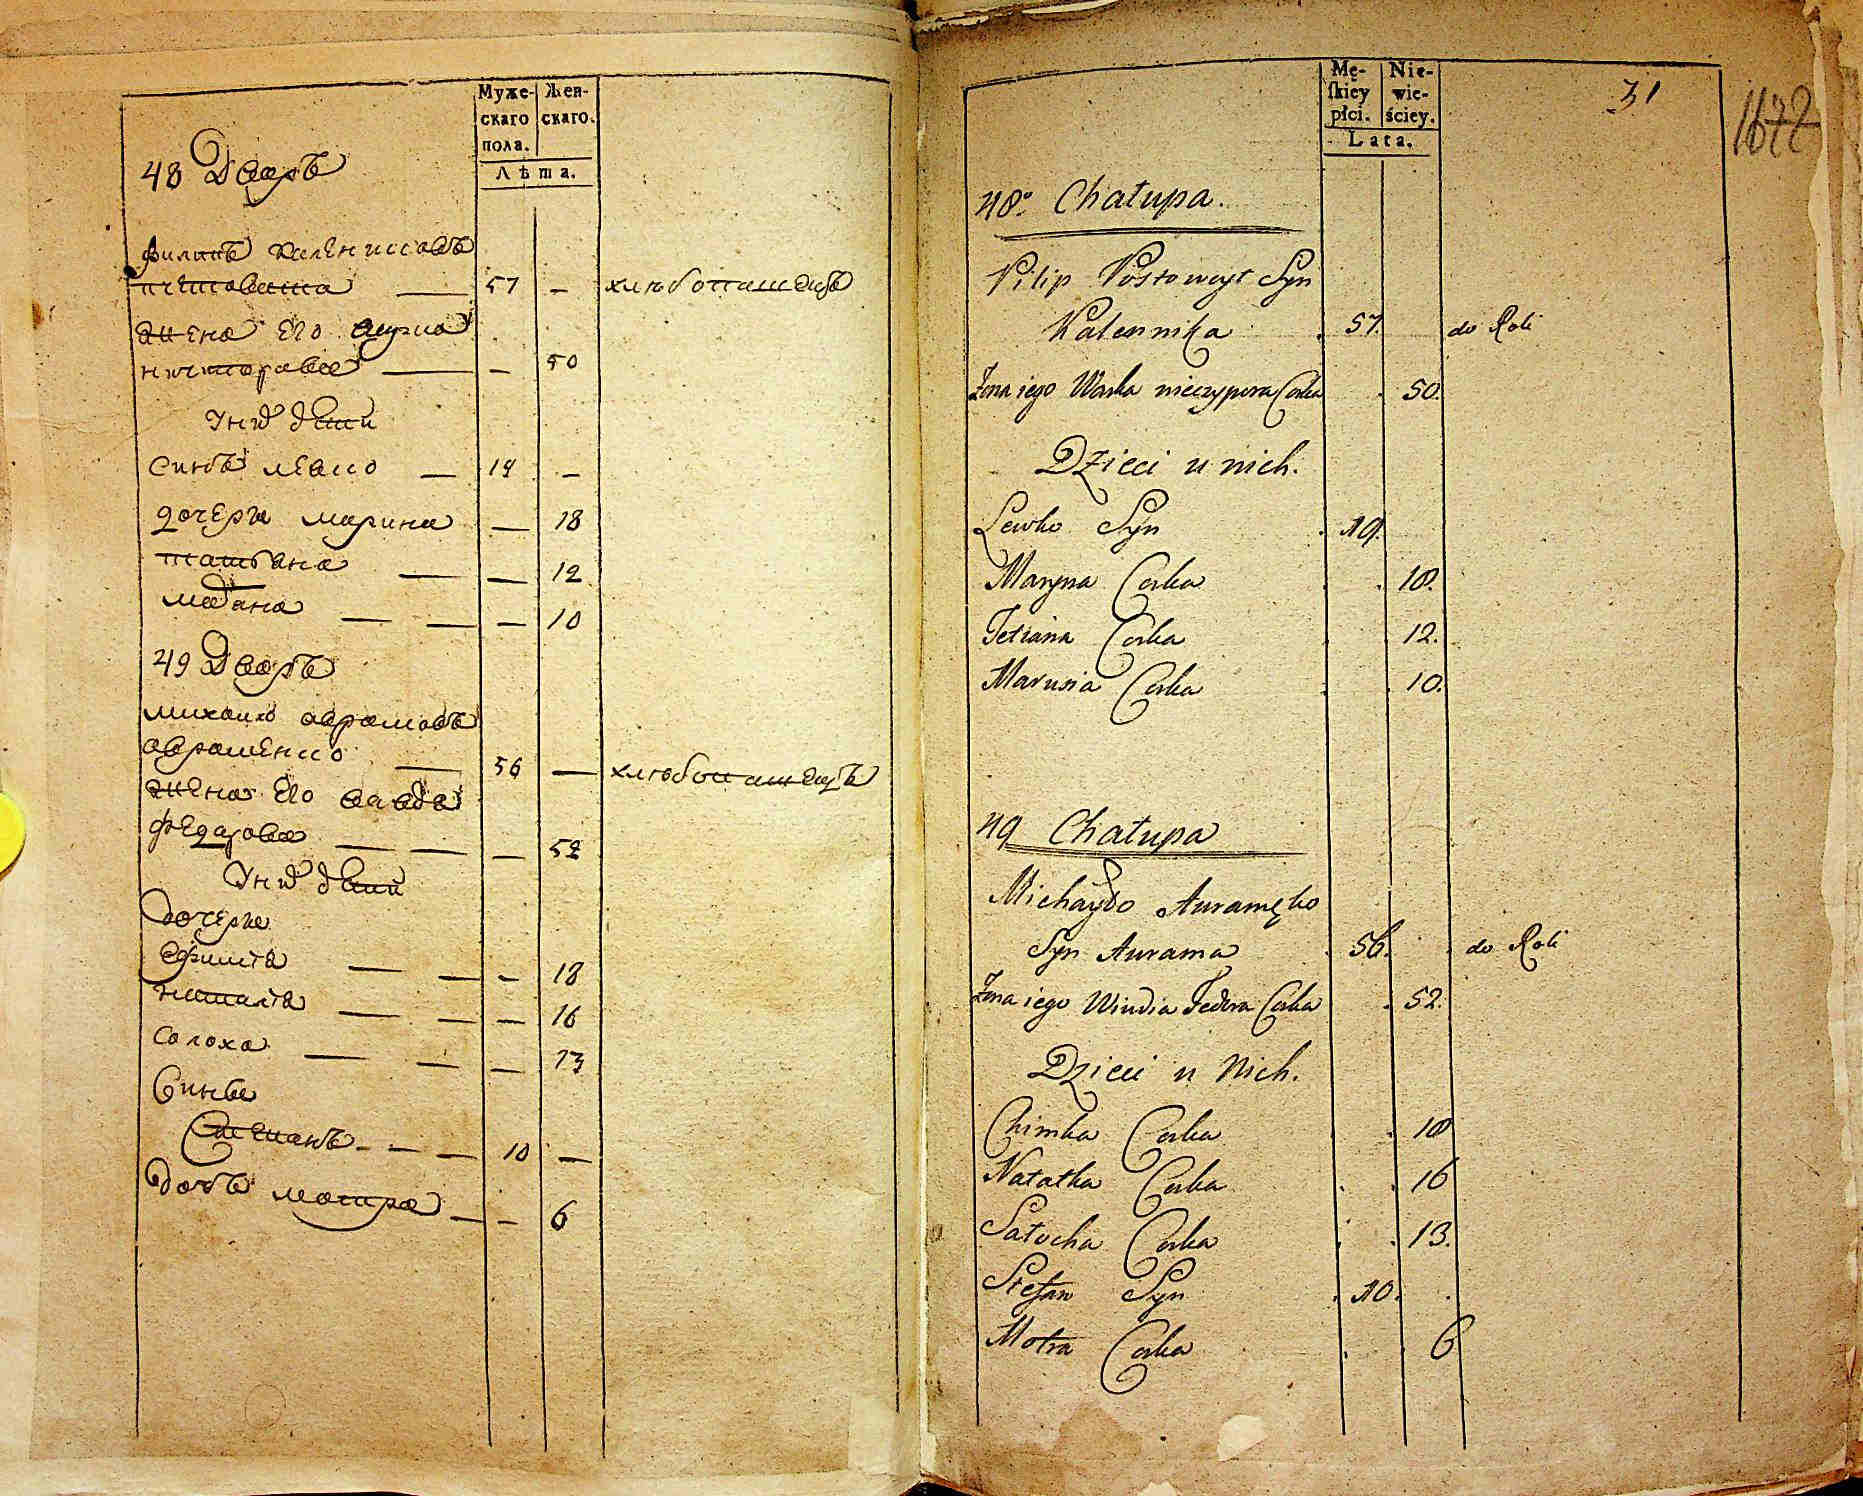 Муже-
скаго
пола.
Жен-
скаго.
Лѣта.
48 Дворъ
Филипъ
57 — хлѣбопашецъ
жена его
— 50
У них дети
Синъ Левко — 14 —
дочери Марина — 18
татъяна — — 12
— — — 10
49 Дворъ
михаило аврамовъ
авраменко — 56 — хлѣбопашецъ
жена его
федорова — — — 52
У них дети
дочери
Ефимія — — — 18
наталія — — — 16
солоха — — — 13
Сины
Степанъ - - — 10 —
дочъ мотра — — 6
Mę-
skiey
płci.
Nie-
wie-
ściey.
Lata.
31
48° Chałupa.
Pilip Postowoyt Syn
Kalennika . 57. do Roli
Żona iego Warka nieczypora Corka . 50.
Dzieci u nich.
Lewko Syn . 19.
Maryna Corka . . 18.
Tetiana Corka . . 12.
Marusia Corka . . 10.
49 Chałupa
Michayło Auramęko
Syn Aurama . 56. . do Roli
Żona iego Windia Fedora Corka . 52.
Dzieci u Nich.
Chimka Corka . . 18
Natalka Corka . . 16
Sałocha Corka . . 13.
Stefan Syn . 10. .
Motra Corka . . 6